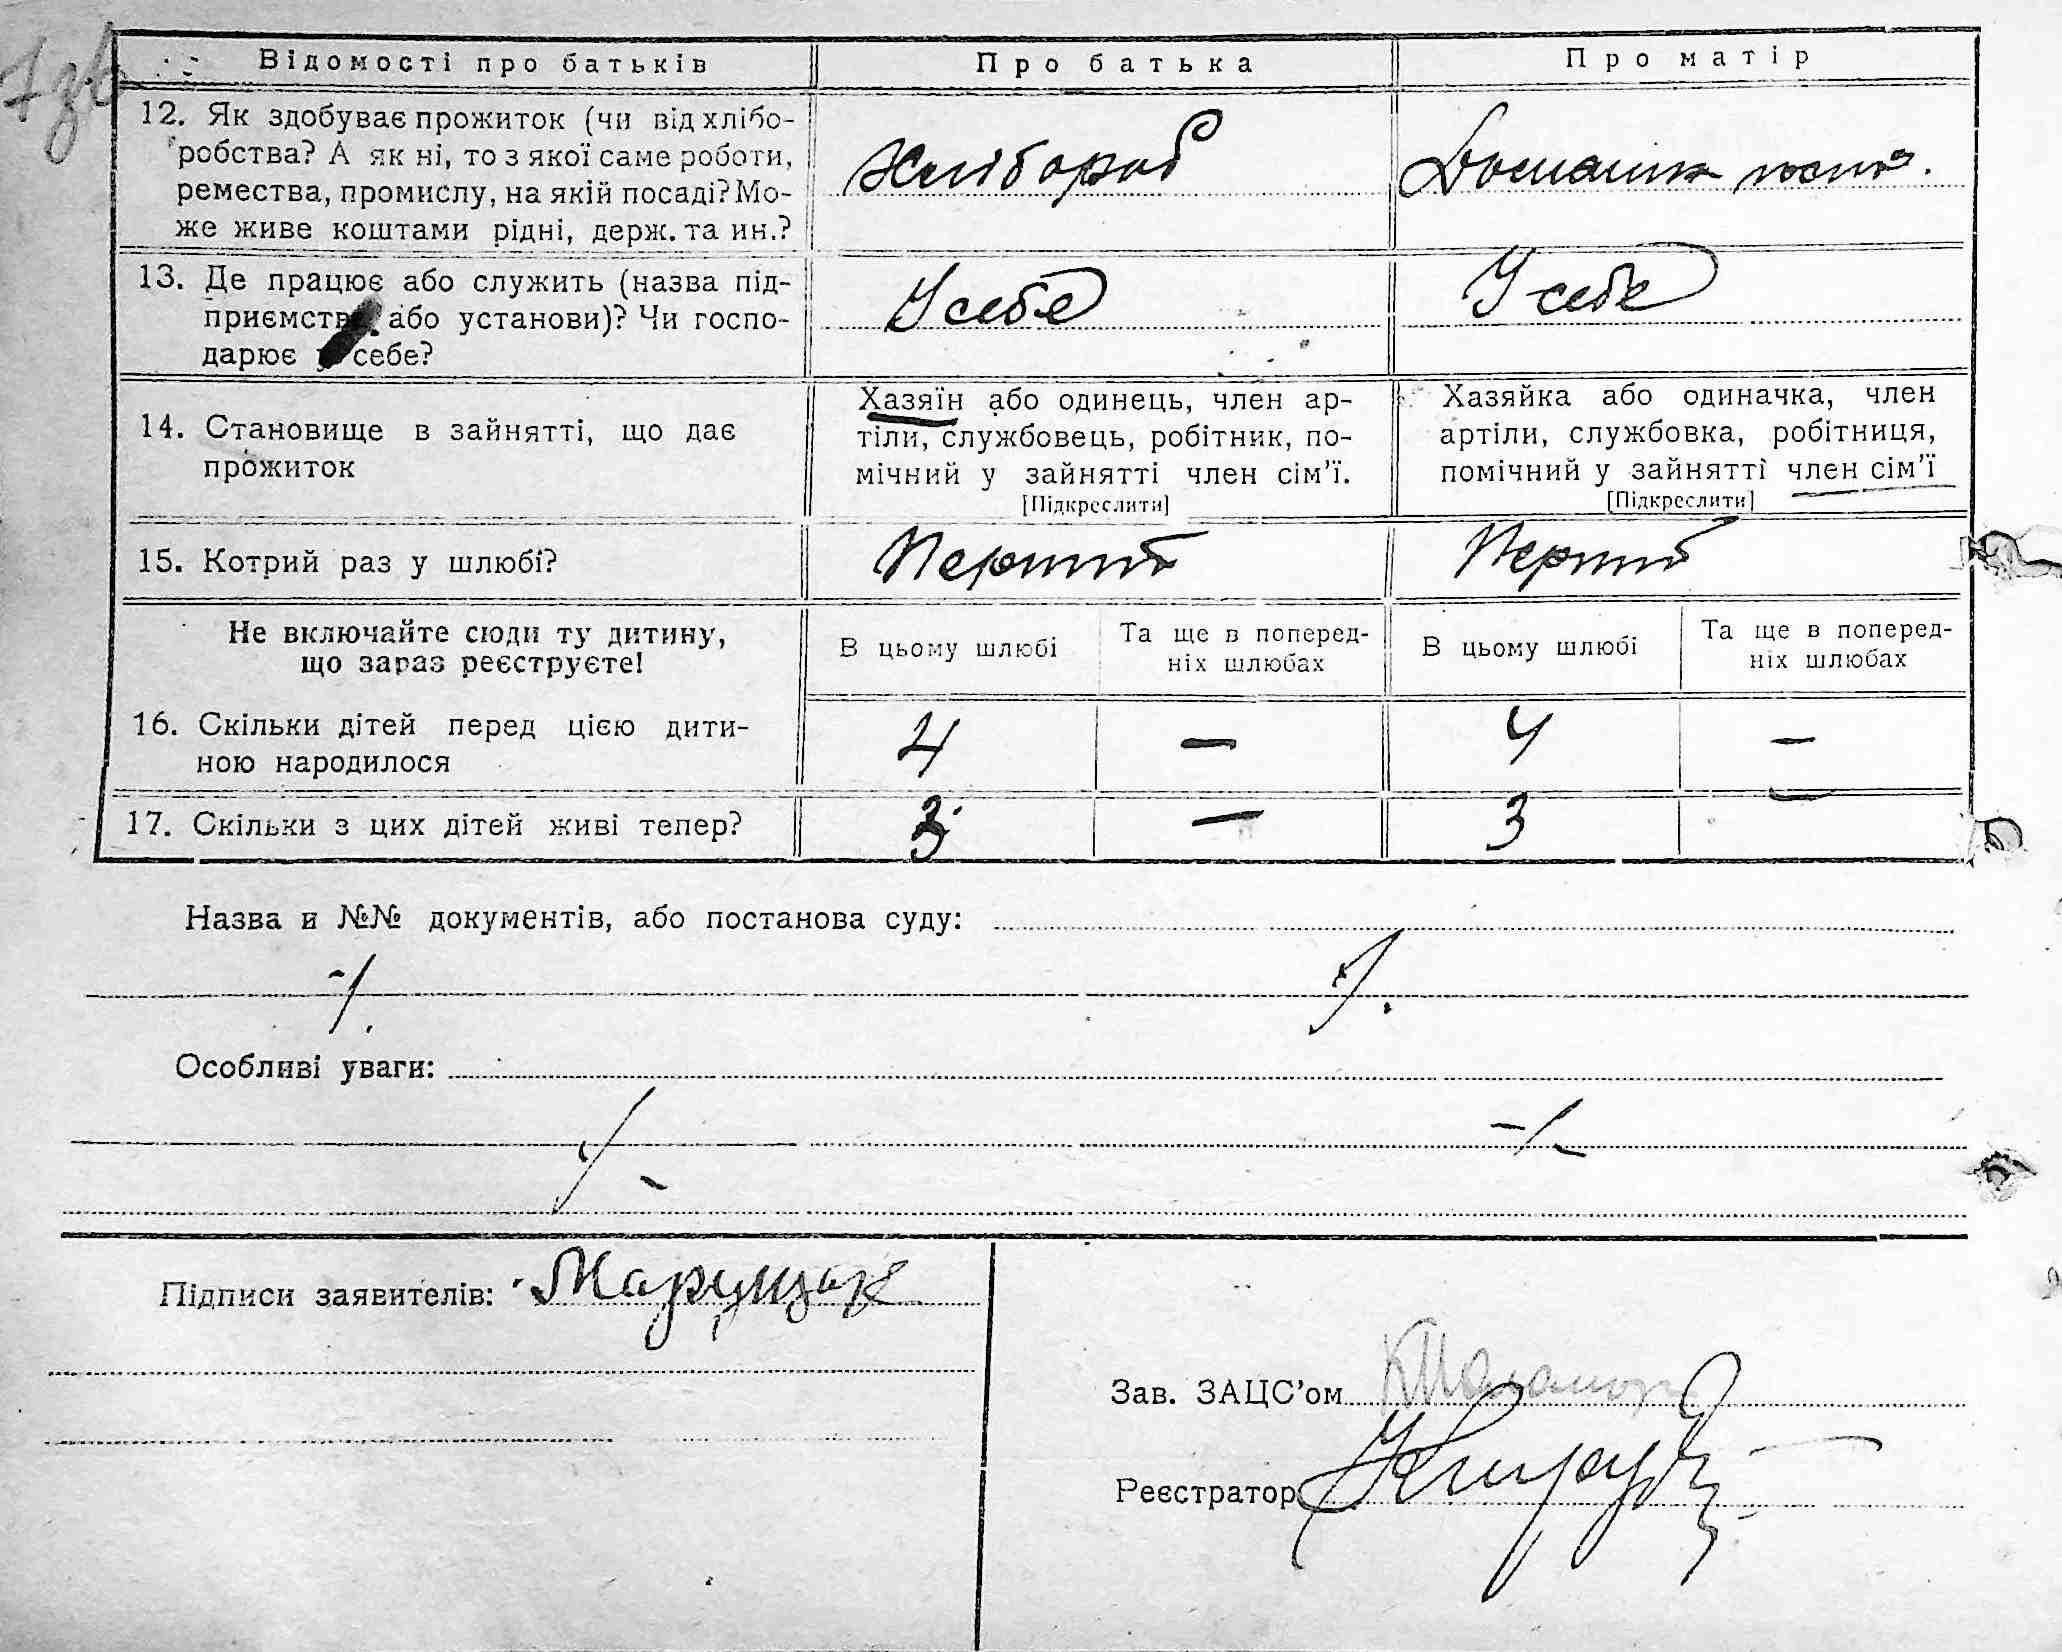 7зв
Відомості про батьків
Про батька
Про матір
12. Як здобуває прожиток (чи від хлібо-
робства? А як ні, то з якої саме роботи,
ремества, промислу, на якій посаді? Мо-
же живе коштами рідні, держ. та ин.?
Хлібороб
Домашнє
13. Де працює або служить (назва під-
приємства або установи)? Чи госпо-
дарює у себе?
У себе
У себе
14. Становище в зайнятті, що дає
прожиток
Хазяїн або одинець, член ар-
тіли, службовець, робітник, по-
мічний у зайнятті член сім'ї.
[Підкреслити]
Хазяйка або одиначка, член
артіли, службовка, робітниця,
помічний у зайнятті член сім'ї
[Підкреслити]
15. Котрий раз у шлюбі?
Перший
Перший
Не включайте сюди ту дитину,
що зараз реєструєте!
В цьому шлюбі
Та ще в поперед-
ніх шлюбах
В цьому шлюбі
Та ще в поперед-
ніх шлюбах
16. Скільки дітей перед цією дити-
ною народилося
4 — 4 —
17. Скільки з цих дітей живі тепер?
3 — 3 —
Назва и №№ документів, або постанова суду:
Особливі уваги:
Підписи заявителів: Марущак
Зав. ЗАЦС'ом
Реєстратор